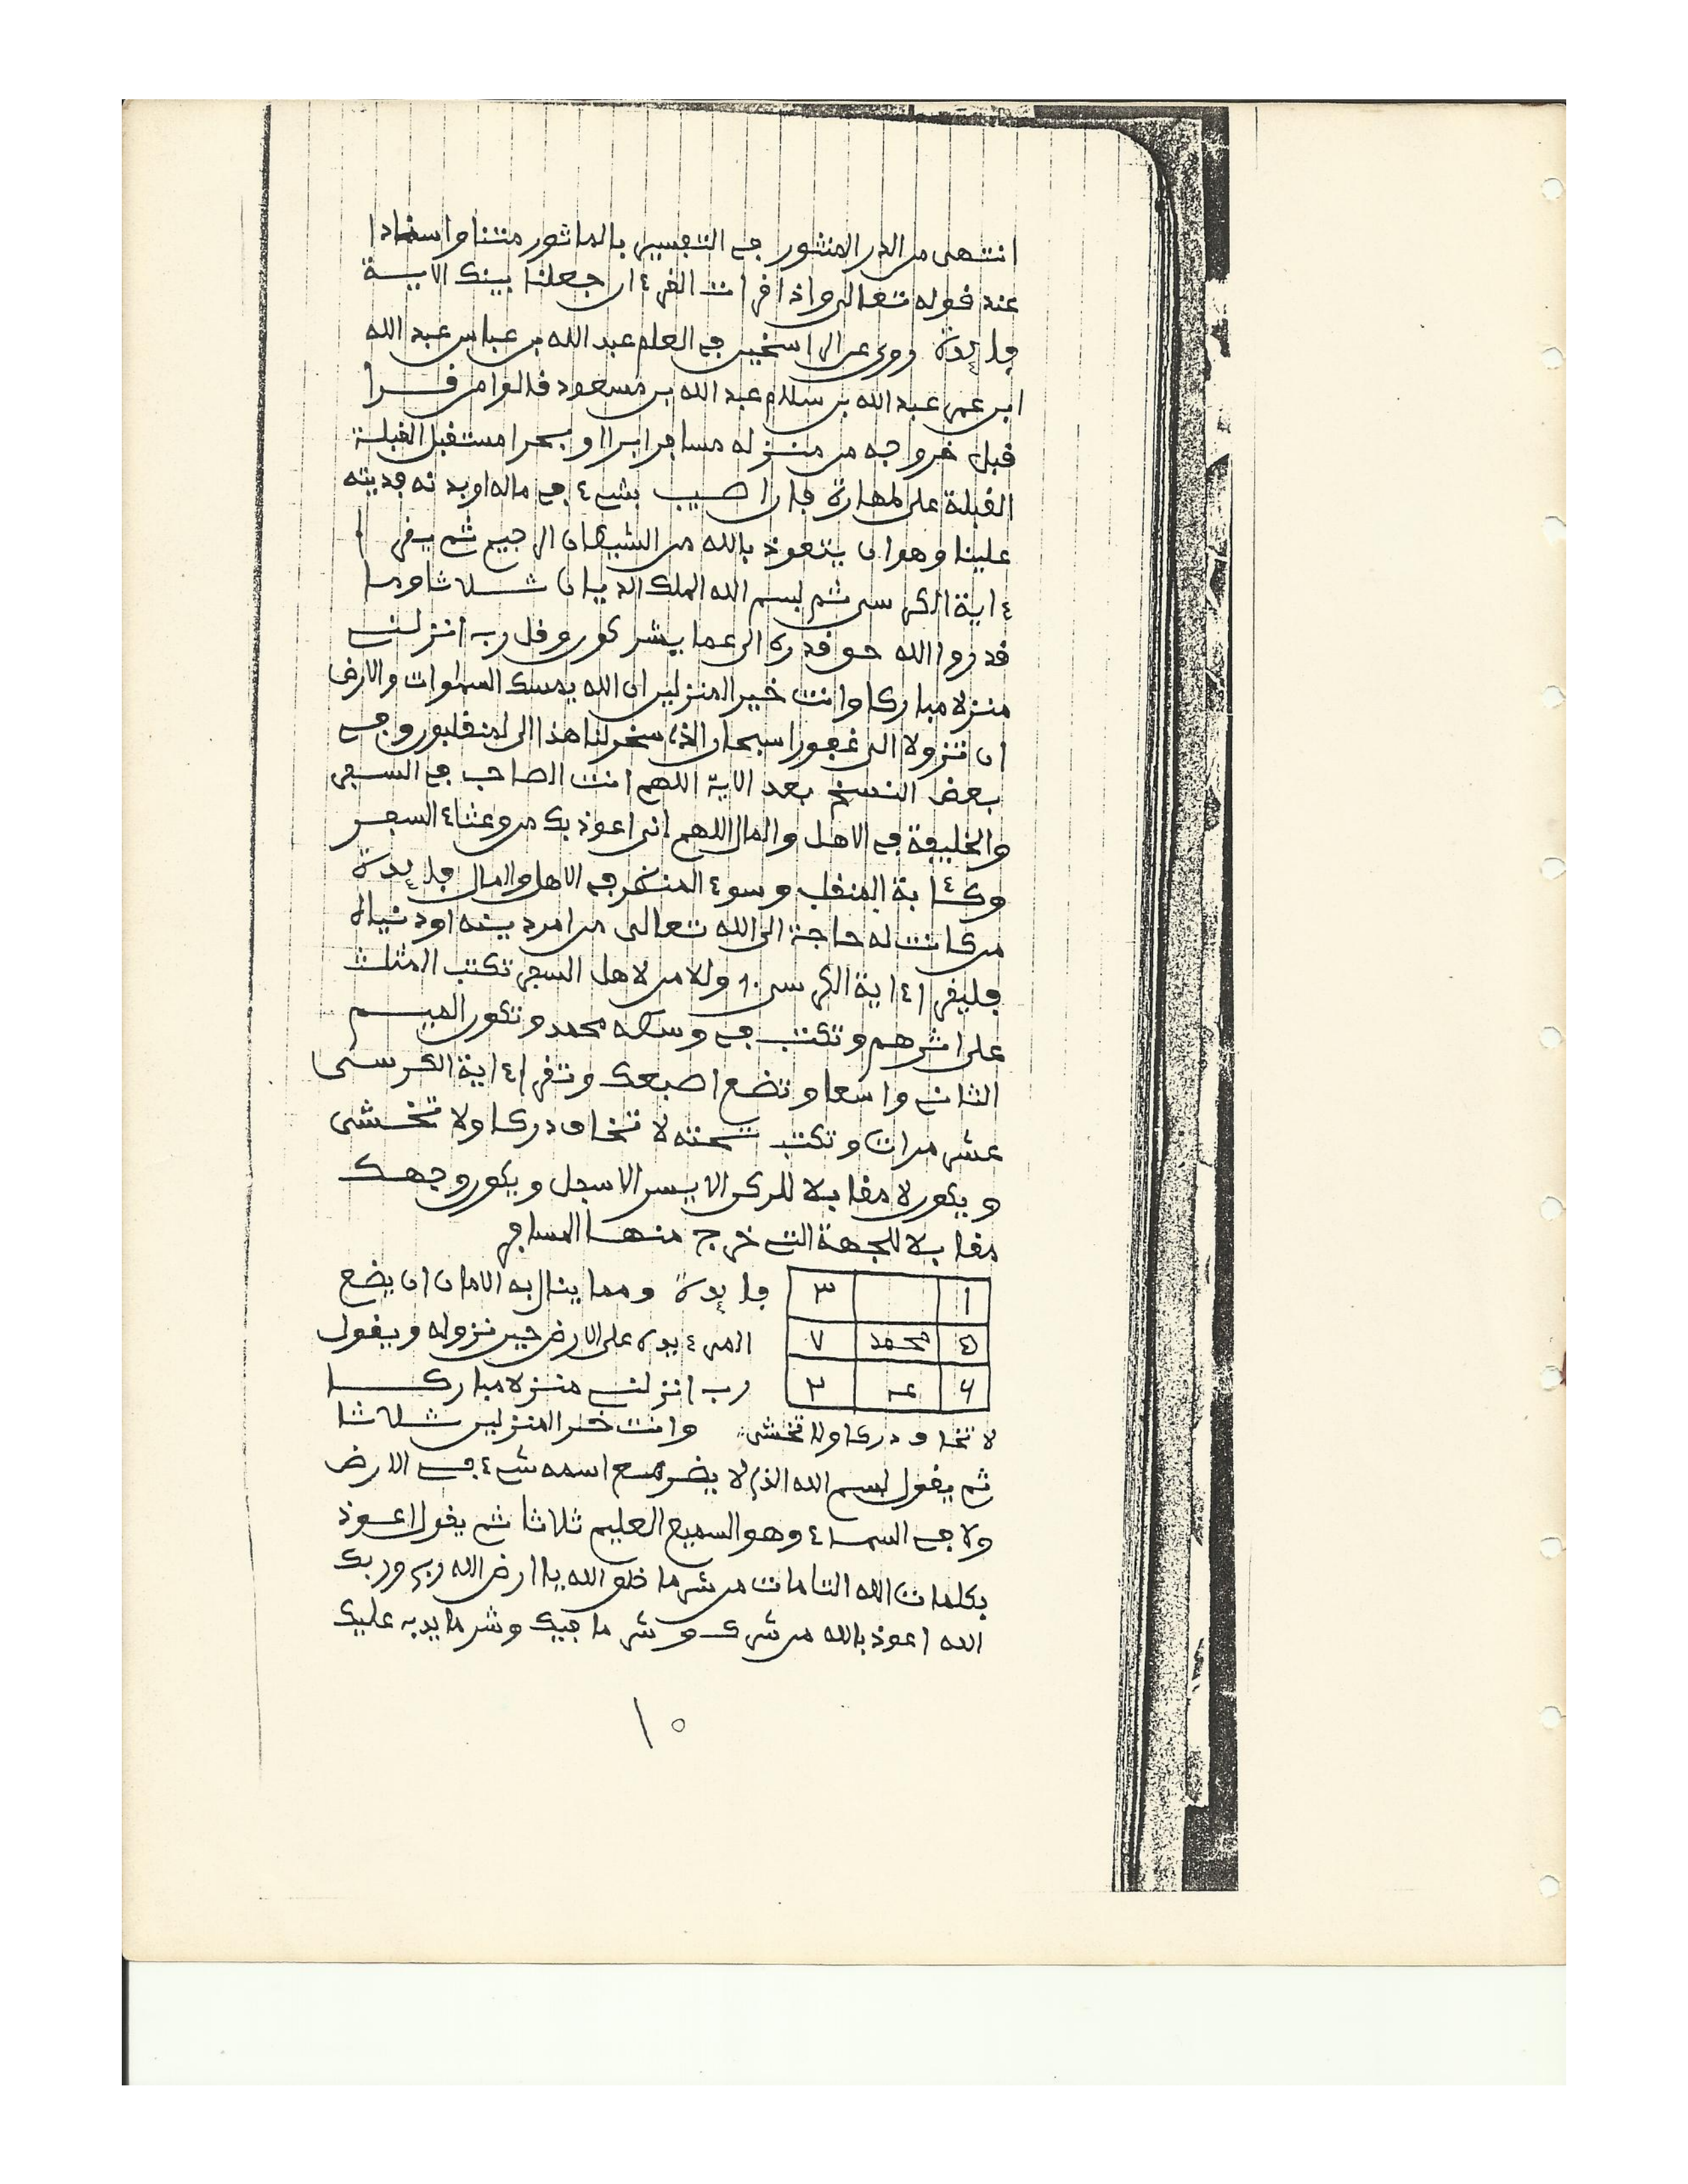 انتهى من الدر المنثور في التفسير بالماثور متنا واسنادا
عند قوله تعالى واذا قرات القرءان جعلنا بينك الاية
فايدة روى عن الراسخين في العلم عبد الله بن عباس عبد الله
ابن عمر عبد الله بن سلام عبد الله بن مسعود قالوا من قرا
قبل خروجه من منزله مسافرا برا او بحرا مستقبل القبلة
القبلة على طهارة فان اصيب بشيء في ماله او بدنه فديته
علينا وهو ان يتعوذ بالله من الشيطان الرجيم ثم يقر ا
ءاية الكرسي ثم بسم الله الملك الديان ثلاثا وما
قدروا الله حق قدره الى عما يشركون وقل رب انزلني
منزلا مباركا وانت خير المنزلين ان الله يمسك السماوات والارض
ان تزولا الى غفورا سبحان الذي سخر لنا هذا الى لمنقلبون وفي
بعض النسخ بعد الاية اللهم انت الصاحب في السفر
والخليفة في الاهل والمال اللهم اني اعوذ بك من وعثاء السفر
وكئابة المنقلب وسوء المنظر في الاهل والمال فايدة
من كانت له حاجة الى الله تعالى من امر دينه او دنياه
فليقرا ءاية الكرسي ١٠ ولامن لاهل السفر تكتب المثلث
على اثرهم وتكتب في وسطه محمد وتكون الميم
الثاني واسعا وتضع اصبعك وتقرا ءاية الكرسي
عشر مرات وتكتب تحته لا تخاف دركا ولا تخشى
ويكون لا مقابلا للركن الايسر الاسفل ويكون وجهك
مقابلا للجهة التي خرج منها المسافر
ا ٣ فايدة ومما ينال به الامان ان يضع
٥ محمد ٧ المرء يده على الارض حين نزوله ويقول
٦ ٣ رب انزلني منزلا مباركا
لا تخاف دركا ولا تخشى وانت خير المنزلين ثلاثا
ثم يقول بسم الله الذي لا يضر مع اسمه شيء في الارض
ولا في السماء وهو السميع العليم ثلاثا ثم يقول اعوذ
بكلمات الله التامات من شر ما خلق الله يا ارض الله ربي وربك
الله اعوذ بالله من شرك وشر ما فيك وشر ما يدب عليك
١٠